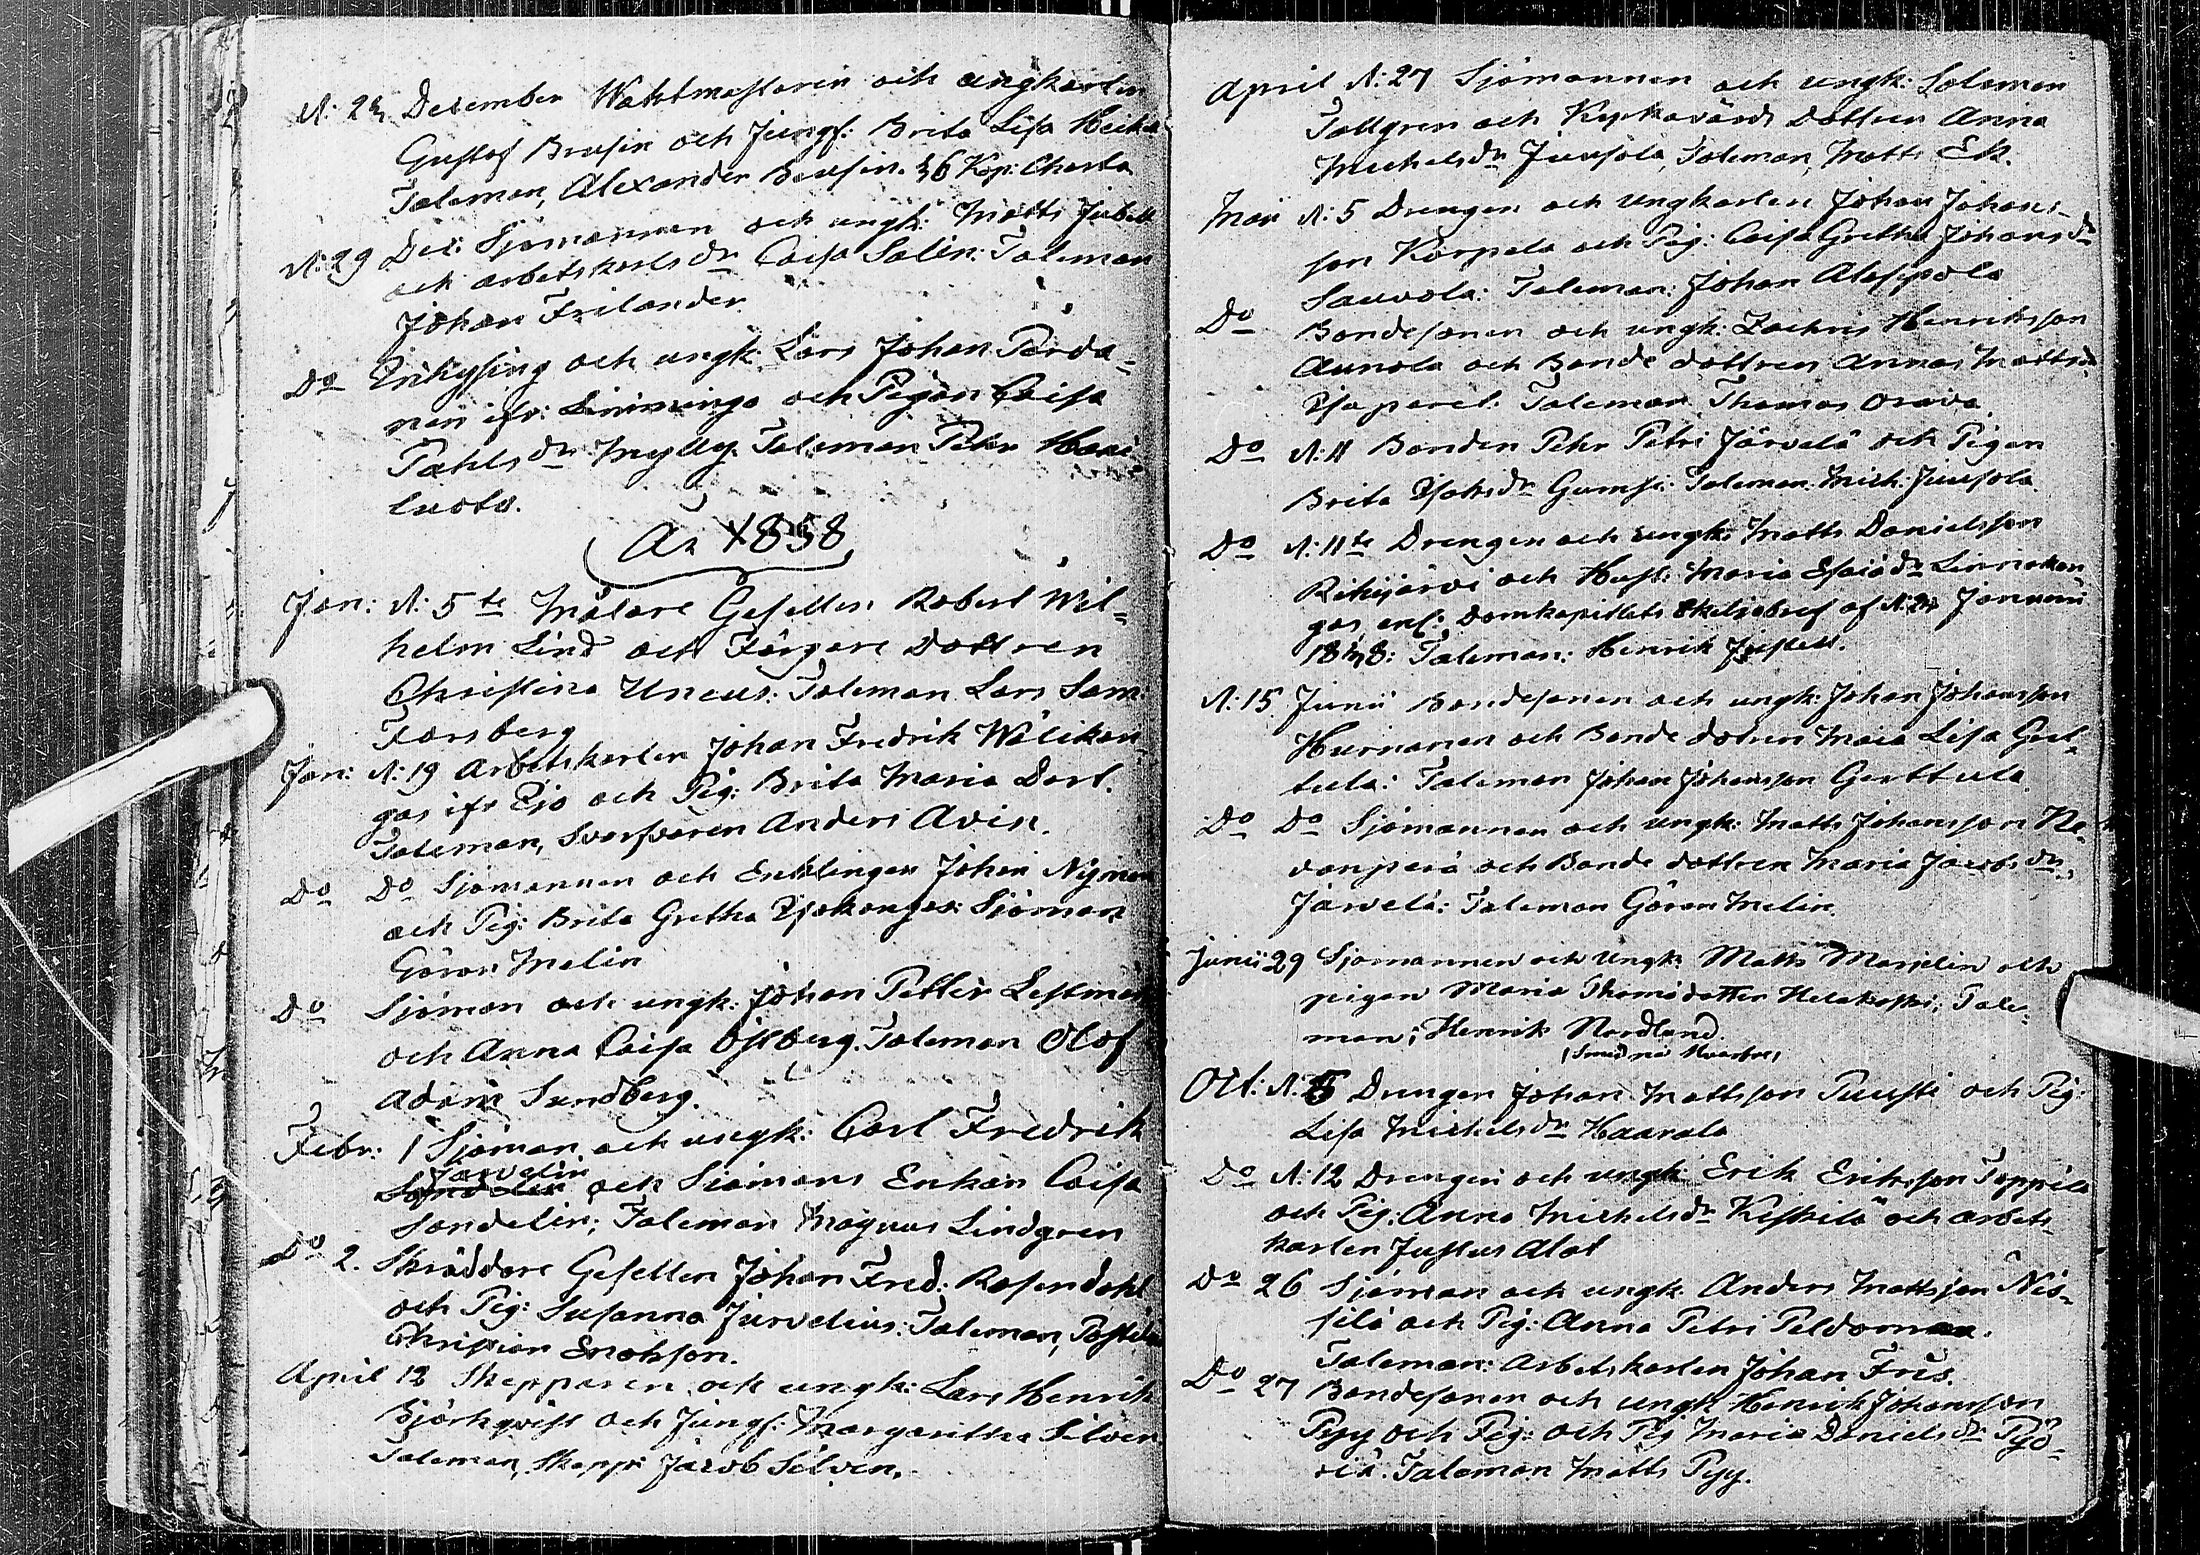 N: 23 December Waktmästaren och ungkarlen
Gustaf Brusin och Jungf: Brita Lisa Heik
Taleman, Alexander Brusin. 36 Kop: Charta
N: 29 Dec: Sjömannen och ungk: Matts Jubell
och arbetskarlsdr Caisa Salin: Taleman
Johan Frilander.
Do och ungk: Lars Johan Parda-
nen ifr: Limmingo och Pigan Caisa
Pahlsdr Mylly. Taleman Pehr Hani-
luoto.
År 1858
Jan: N: 5te Målare Gesellen Robert Wil-
helm Lind och Färgare dottren
Christina Uncus: Taleman Lars Sam:
Forsberg
Jan: N: 19 Arbetskarlen Johan Fredrik Wälikan-
gas ifr Ijo och Pig: Brita Maria Dorl.
Taleman, Svarfvaren Anders Avin.
Do Do Sjömannen och Enklingen Johan Nyman
och Pig: Brita Gretha Sjöman
Göran Melin
Do Sjöman och ungk: Johan Petter Lestman
och Anna Caisa Östberg. Taleman Olof
Adam Sundberg.
Febr: 1 Sjöman och ungk: Carl Fredrik
Jarvelin
och Sjömans Enkan Caisa
Sandelin; Taleman Magnus Lindgren
Do 2. Skräddare Gesellen Johan Fred: Rosendahl
och Pig: Susanna Jurvelius: Taleman,
Christian Enokson.
April 12 Skepparen och ungk: Lars Henrik
Björkqvist och Jungf: Margaritha Silven
Taleman, Skepp: Jacob Silvén.
April N: 27 Sjömannen och ungk: Salomon
Tallgren och Kyrkovärds dottren Anna
Michelsdr Juusola, Taleman, Matts Ek.
Maii N: 5 Drengen och ungkarlen Johan Johans-
son Korpela och Pig: Caisa Gretha Johansdr
Sauvola: Taleman: Johan Aleppola
Do Bondesonen och ungk: Zachris Henriksson
Aunola och Bonde dottren Anna Mattsd
Taleman Thomas Orava.
Do N: 11 Bonden Pehr Petri Järvelä och Pigan
Brita Isaksdr Gumse: Taleman: Mich: Juusola.
Do N: 11te Drengen och ungk: Matts Danielsson
Pikijärvi och Hust: Maria Esaiædr Linnakan
gas enl: Domkapitlets Skiljobref af N: 24 Januarii
1838: Taleman: Henrik Justell.
N: 15 Junii Bondesonen och ungk: Johan Johansson
Hurnanen och Bonde dotren Maria Lisa Gret-
tula: Taleman Johan Johansson Gerttula.
Do Do Sjömannen och ungk: Matts Johansson Ne
vanperä och Bonde dottren Maria Jacobsdr
Järvelä: Taleman Göran Melin.
Junii 29 Sjömannen och ungk: Matts Marjelin och
pigan Maria Thomædotter Helakoski; Tale-
man; Henrik Nordlund.
Oct: N: 5 Drengen Johan Mattsson Puusti och Pig:
Lisa Michelsdr Haarala
Do N: 12 Drengen och ungk Erik Eriksson Toppila
och Pig: Anna Michelsdr Keskilä och arbets
karlen Justus Alat
Do 26 Sjöman och ungk: Anders Mattsson Nis-
silä och Pig: Anna Petri Peldoman.
Taleman: Arbetskarlen Johan Friis.
Do 27 Bondesonen och ungk Henrik Johansson
Pyy och Pig: och Pig Maria Danielsdr Pyö-
riä: Taleman Matts Pyy.